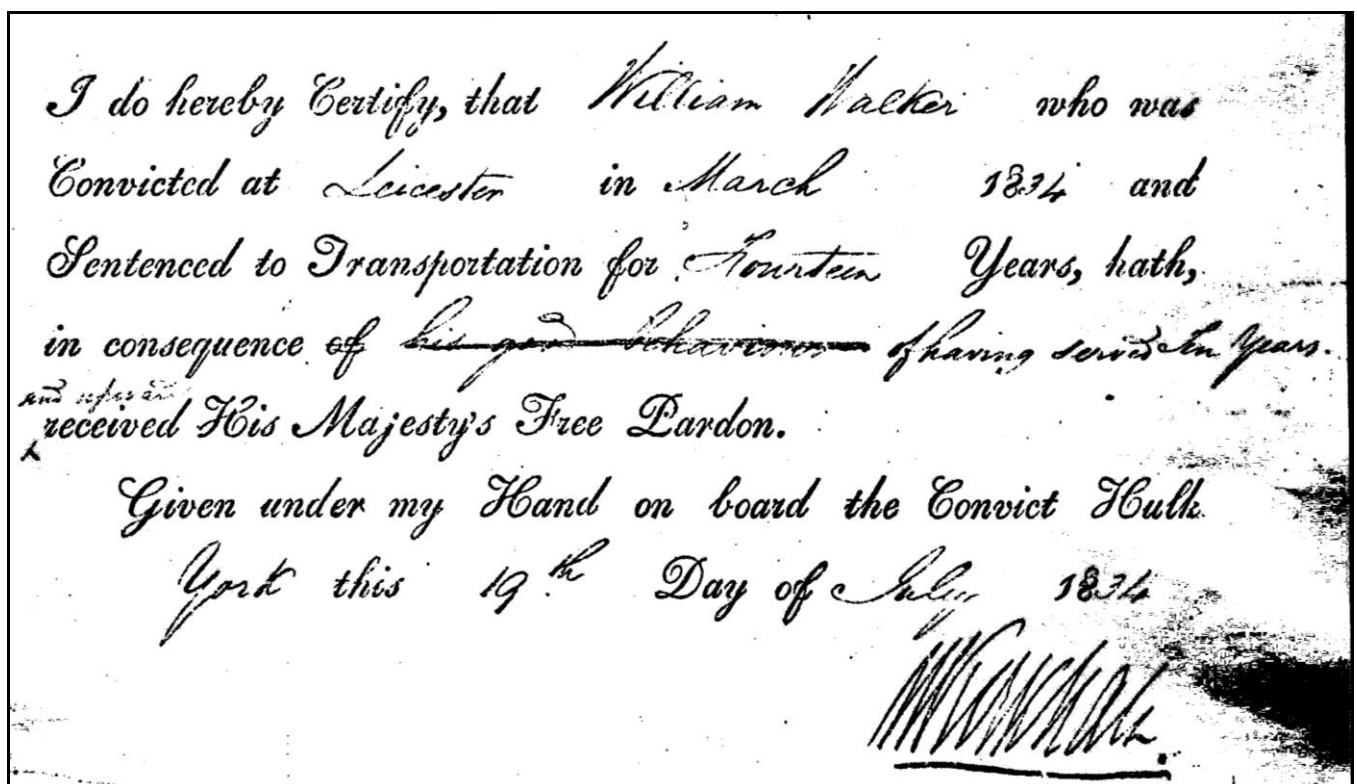 I do hereby Certify, that William Walker who was
Convicted at Leicester in March 1834 and
Sentenced to Transportation for Fourteen Years, hath,
in consequence of his good behaviour of having served ten Years.
and
received His Majesty's Free Pardon.
Given under my Hand on board the Convict Hulk
York this 19th Day of July 1834